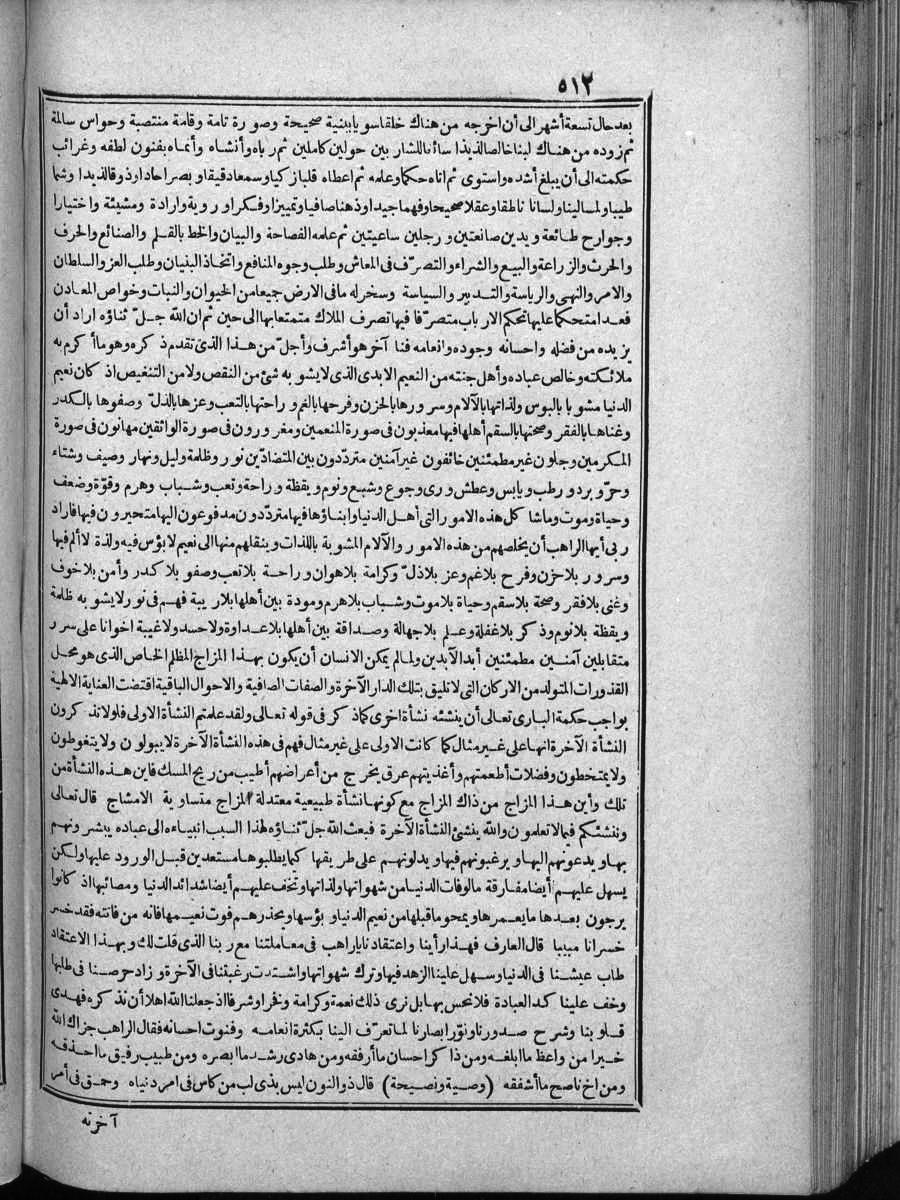 ٥١٢
بعد حال تسعة أشهر الى أن اخرجه من هناك خلقا سويا ببنية صحيحة وصورة تامة وقامة منتصبة وحواس سالمة
ثم زوده من هناك لبنا خالصا لذيذا سائغا للشار بين حولين كاملين ثم رباه وأنشاه وأنماه بفنون لطفه وغرائب
حكمته الى أن يبلغ أشده واستوى ثم اتاه حكما وعلمه ثم اعطاه قلبا زكيا وسمعا دقيقا وبصرا حادا وذوقا لذيذا وشما
طيبا ولمسا لينا ولسانا ناطقا وعقلا صحيحا وفهما جيدا وذهنا صافيا وتمييزا وفكرا وروية وارادة ومشيئة واختيارا
وجوارح طائعة ويدين صانعتين ورجلين ساعيتين ثم علمه الفصاحة والبيان والخط بالقلم والصنائع والحرف
والحرث والزراعة والبيع والشراء والتصرّف فى المعاش وطلب وجوه المنافع واتخاذ البنيان وطلب العز والسلطان
والامر والنهى والرياسة والتدبير والسياسة وسخر له ما فى الارض جميعا من الحيوان والنبات وخواص المعادن
فغدا متحكما عليها تحكم الارباب متصرّفا فيها تصرف الملاك متمتعا بها الى حين ثم ان الله جلّ ثناؤه اراد أن
يزيده من فضله واحسانه وجوده وانعامه فنا آخر هو أشرف وأجلّ من هذا الذى تقدم ذكره وهو ما أكرم به
ملائكته وخالص عباده وأهل جنته من النعيم الابدى الذى لا يشوبه شئ من النقص ولا من التنغيص اذ كان نعيم
الدنيا مشوبا بالبوس ولذاتها بالآلام وسرورها بالحزن وفرحها بالغم وراحتها بالتعب وعزها بالذلّ وصفوها بالكدر
وغناها بالفقر وصحتها بالسقم أهلها فيها معذبون فى صورة المنعمين ومغرورون فى صورة الواثقين مهانون فى صورة
المكرمين وجلون غير مطمئنين خائفون غير آمنين متردّدون بين المتضادّين نور وظلمة وليل ونهار وصيف وشتاء
وحرّ وبرد ورطب ويابس وعطش ورى وجوع وشبع ونوم ويقظة وراحة وتعب وشباب وهرم وقوّة وضعف
وحياة وموت وماشا كل هذه الامور التى أهل الدنيا وابناؤها فيها متردّدون مدفوعون اليها متحيرون فيها فاراد
ربى أيها الراهب أن يخلصهم من هذه الامور والآلام المشوبة باللذات وينقلهم منها الى نعيم لا بؤس فيه ولذة لا ألم فيها
وسرور بلا حزن وفرح بلا غم وعز بلا ذلّ وكرامة بلا هوان وراحة بلا تعب وصفو بلا كدر وأمن بلا خوف
وغنى بلا فقر وصحة بلا سقم وحياة بلا موت وشباب بلا هرم ومودة بين أهلها بلا ريبة فهم فى نور لا يشوبه ظلمة
ويقظة بلا نوم وذكر بلا غفلة وعلم بلا جهالة وصداقة بين أهلها بلا عداوة ولا حسد ولا غيبة اخوانا على سرر
متقابلين آمنين مطمئنين أبد الآبدين ولما لم يمكن الانسان أن يكون بهذا المزاج المظلم الخاص الذى هو محل
القذورات المتولد من الاركان التى لا تليق بتلك الدار الآخرة والصفات الصافية والاحوال الباقية اقتضت العناية الالهية
بواجب حكمة البارى تعالى أن ينشئه نشأة اخرى كما ذكر فى قوله تعالى ولقد علمتم النشأة الاولى فلولا تذكرون
النشأة الآخرة انها على غير مثال كما كانت الاولى على غير مثال فهم فى هذه النشأة الآخرة لا يبولون ولا يتغوطون
ولا يمتخطون وفضلات أطعمتهم وأغذيتهم عرق يخرج من أعراضهم أطيب من ريح المسك فاين هذه النشأة من
تلك وأين هذا المزاج من ذاك المزاج مع كونها نشأة طبيعية معتدلة المزاج متساوية الامشاج قال تعالى
وننشئكم فيما لا تعلمون والله ينشئ النشأة الآخرة فبعث الله جلّ ثناؤه لهذا السبب انبياءه الى عباده يبشرونهم
بها ويدعونهم اليها ويرغبونهم فيها ويدلونهم على طريقها كيما يطلبوها مستعدين قبل الورود عليها ولكن
يسهل عليهم أيضا مفارقة مألوفات الدنيا من شهواتها ولذاتها وتخف عليهم أيضا شدائد الدنيا ومصائبها اذ كانوا
يرجون بعدها ما يغمرها ويمحو ما قبلها من نعيم الدنيا وبؤسها ويحذرهم فوت نعيمها فانه من فاتته فقد خسر
خسرانا مبينا قال العارف فهذا رأينا واعتقادنا يا راهب فى معاملتنا مع ربنا الذى قلت لك وبهذا الاعتقاد
طاب عيشنا فى الدنيا وسهل علينا الزهد فيها وترك شهواتها واشتدت رغبتنا فى الآخرة وزاد حرصنا فى طلبها
وخف علينا كد العبادة فلا نحس بها بل نرى ذلك نعمة وكرامة وفخرا وشرفا اذ جعلنا الله اهلا أن نذكره فهدى
قلوبنا وشرح صدورنا ونوّر ابصارنا لما تعرّف الينا بكثرة انعامه وفنوت احسانه فقال الراهب جزاك الله
خيرا من واعظ ما ابلغه ومن ذاكر احسان ما أرفقه ومن هادى رشد ما ابصره ومن طبيب رفيق ما احذقه
ومن اخ ناصح ما أشفقه (وصية ونصيحة) قال ذو النون ليس بذى لب من كاس فى امر دنياه وحمق فى أمر
آخرته